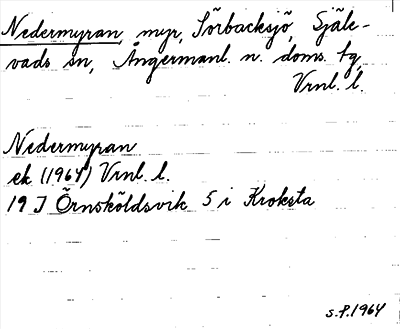 Nedermyran, myr, Sörbacksjö, Själe-
vads sn, Ångermanl. n. doms. tg,
Vrnl. l.
Nedermyran
ek (1964) Vrnl. l.
19 J Örnsköldsvik 5 i Kroksta
S.P. 1964